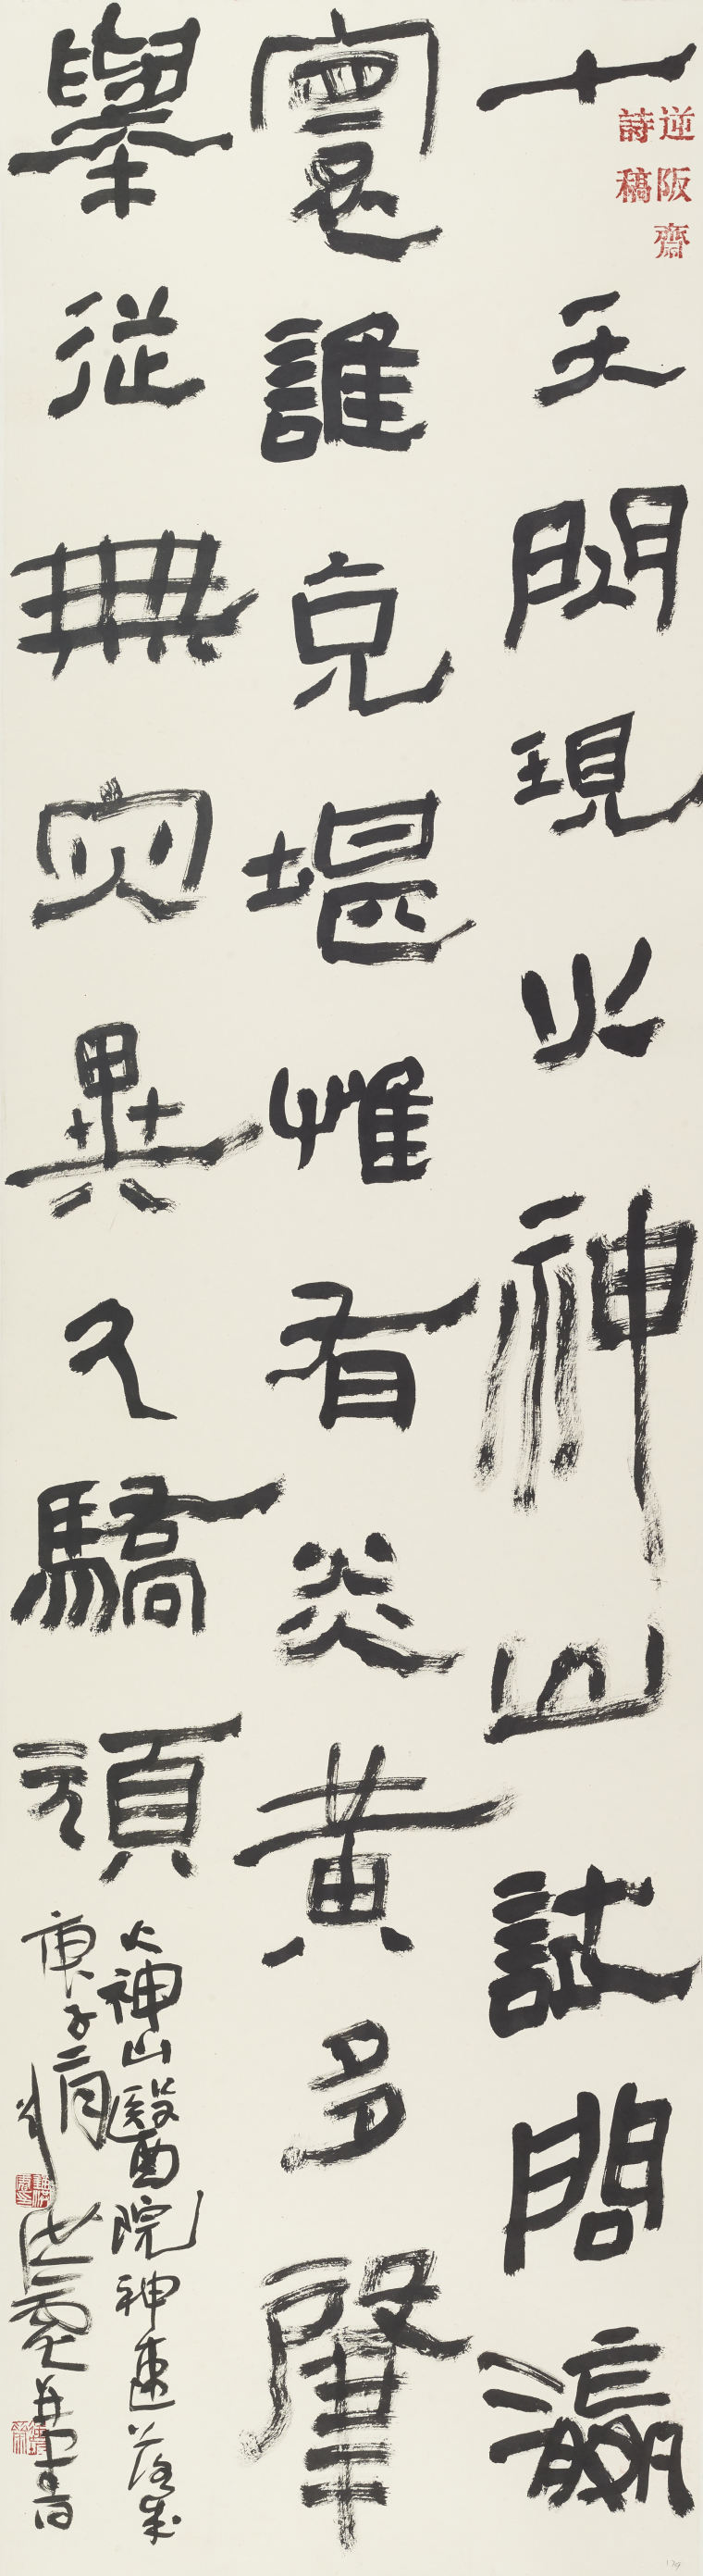 逆阪齋
詩稿
十天閃現火神山試問瀛
寰誰克堪惟有炎黃多肇
舉従無灾異久驕頑
火神山醫院神速落成
庚子二月 并書